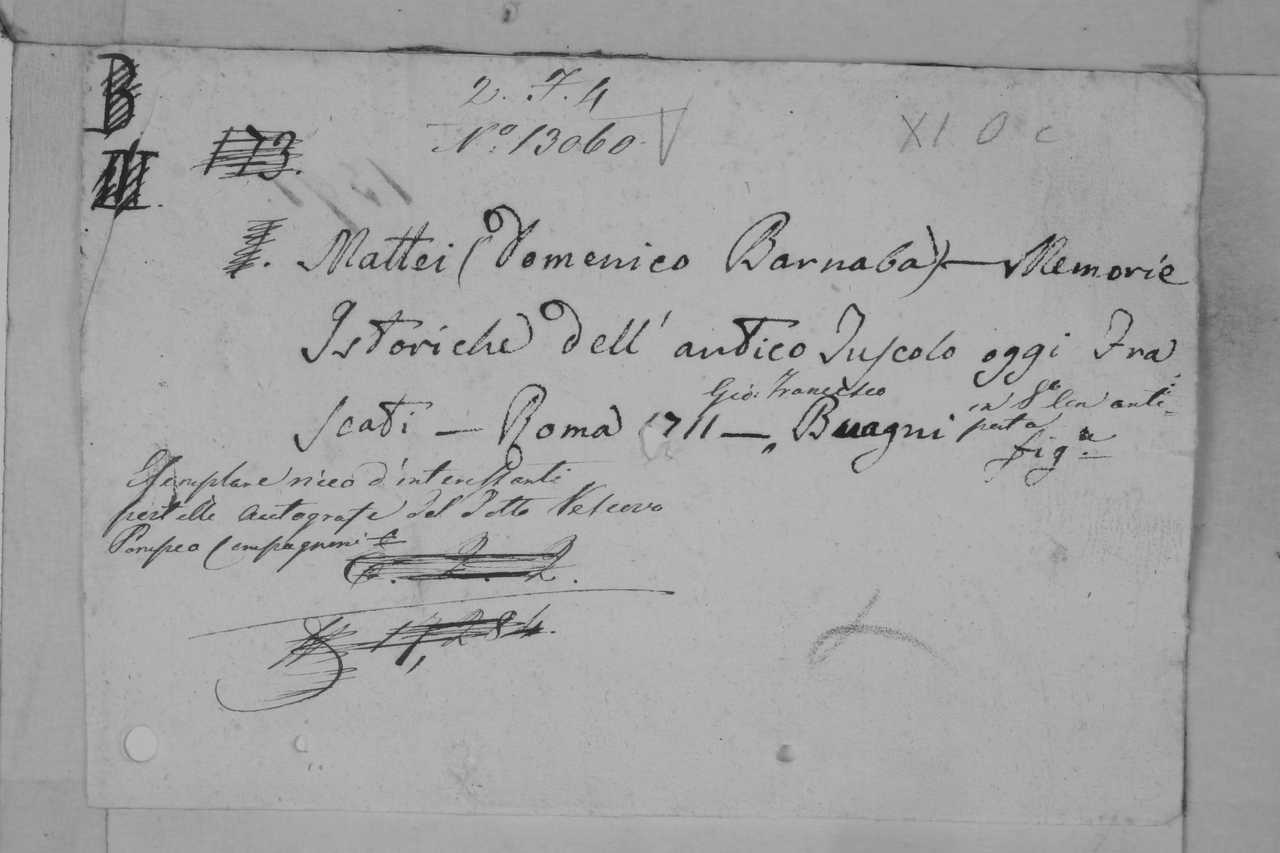 B
2. F. 4
N.º 13060.
XI O c
III.
173.
I. Mattei (Domenico Barnaba) — Memorie
Istoriche dell' antico Tuscolo oggi Fra
scati — Roma 1711 — Gio: Francesco Buagni in 8º con anti-
porta
fig.e
Esemplare ricco d'interessanti
postille autografe del Dotto Vescovo
Pompeo Compagnoni
C. R. R.
N 17,284.